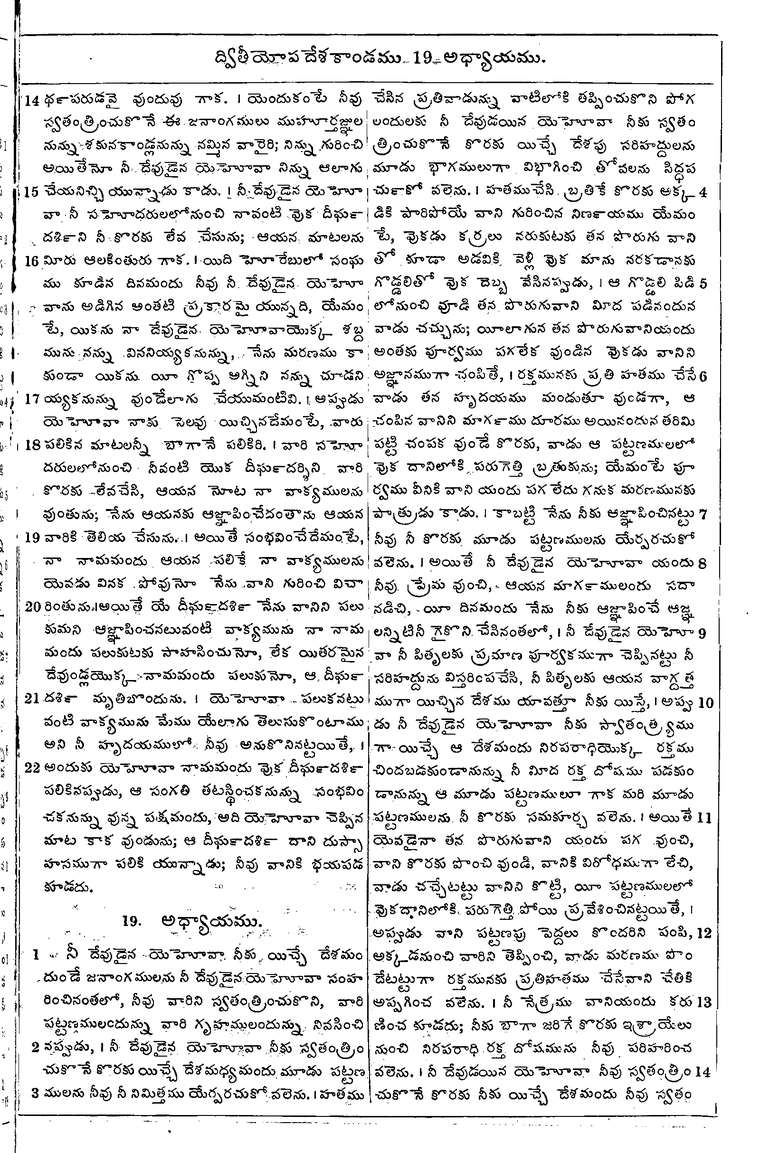 ద్వితీయోపదేశకాండము 19 అధ్యాయము.
14 థ౯పరుడవై వుందువు గాక. । యెందుకంటే నీవు
స్వతంత్రించుకొనే ఈ జనాంగములు ముహూర్తజ్ఞుల
నున్ను శకునకాండ్లనున్ను నమ్మిన వారైరి; నిన్ను గురించి
అయితేమో నీ దేవుడైన యెహోవా నిన్ను ఆలాగు
15 చేయనిచ్చి యున్నాడు కాడు. । నీ దేవుడైన యెహో
వా నీ సహోదరులలోనుంచి నావంటి వొక దీఘ౯
దశి౯ని నీ కొరకు లేవ చేసును; ఆయన మాటలను
16 మీరు ఆలకింతురు గాక. । యిది హోరేబులో సంఘ
ము కూడిన దినమందు నీవు నీ దేవుడైన యెహో
వాను అడిగిన అంతటి ప్రకారమై యున్నది, యేమం
టే, యికను నా దేవుడైన యెహోవాయొక్క శబ్ద
మును నన్ను విననియ్యకనున్ను, నేను మరణము కా
కుండా యికను యీ గొప్ప అగ్నిని నన్ను చూడని
17 య్యకనున్ను వుండేలాగు చేయుమంటివి. । అప్పుడు
యెహోవా నాకు సెలవు యిచ్చినదేమంటే, వారు
18 పలికిన మాటలన్నీ బాగానే పలికిరి. । వారి సహో
దరులలోనుంచి నీవంటి యొక దీఘ౯దర్శిని వారి
కొరకు లేవచేసి, ఆయన నోట నా వాక్యములను
వుంతును; నేను ఆయనకు ఆజ్ఞాపించేదంతాను ఆయన
19 వారికి తెలియ చేసును. । అయితే సంభవించేదేమంటే,
నా నామమందు ఆయన పలికే నా వాక్యములను
యెవడు వినక పోవునో నేను వాని గురించి విచా
20 రింతును.।అయితే యే దీఘ౯దశి౯ నేను వానిని పలు
కుమని ఆజ్ఞాపించనటువంటి వాక్యమును నా నామ
మందు పలుకుటకు సాహసించునో, లేక యితరమైన
దేవుండ్లయొక్క నామమందు పలుకునో, ఆ దీఘ౯
21 దశి౯ మృతిబొందును. । యెహోవా పలుకనటు
వంటి వాక్యమును మేము యేలాగు తెలుసుకొంటాము
అని నీ హృదయములో నీవు అనుకొనినట్టయితే, ।
22 అందుకు యెహోవా నామమందు వొక దీఘ౯దశి౯
పలికినప్పుడు, ఆ సంగతి తటస్థించకనున్ను సంభవిం
చకనున్ను వున్న పక్షమందు, అది యెహోవా చెప్పిన
మాట కాక వుండును; ఆ దీఘ౯దశి౯ దాని దుస్సా
హసముగా పలికి యున్నాడు; నీవు వానికి భయపడ
కూడదు.
19. అధ్యాయము.
1 నీ దేవుడైన యెహోవా నీకు యిచ్చే దేశమం
దుండే జనాంగములను నీ దేవుడైన యెహోవా సంహ
రించినంతలో, నీవు వారిని స్వతంత్రించుకొని, వారి
పట్టణములందున్ను వారి గృహములందున్ను నివసించి
2 నప్పుడు, । నీ దేవుడైన యెహోవా నీకు స్వతంత్రిం
చుకొనే కొరకు యిచ్చే దేశమధ్యమందు మూడు పట్టణ
3 ములను నీవు నీ నిమిత్తము యేర్పరచుకో వలెను. । హతము
చేసిన ప్రతివాడున్ను వాటిలోకి తప్పించుకొని పోగ
లందులకు నీ దేవుడయిన యెహోవా నీకు స్వతం
త్రించుకొనే కొరకు యిచ్చే దేశపు సరిహద్దులను
మూడు భాగములుగా విభాగించి తోవలను సిద్ధప
చుకో వలెను. । హతముచేసి బ్రతికే కొరకు అక్క 4
డికి పారిపోయే వాని గురించిన నిణ౯యము యేమం
టే, వొకడు కర్రలు నరుకుటకు తన పొరుగు వాని
తో కూడా అడవికి వెళ్లి వొక మాను నరకడానకు
గొడ్డలితో వొక దెబ్బ వేసినప్పుడు, । ఆ గొడ్డలి పిడి 5
లోనుంచి వూడి తన పొరుగువాని మీద పడినందున
వాడు చచ్చును; యీలాగున తన పొరుగువానియందు
అంతకు పూర్వము పగలేక వుండిన వొకడు వానిని
అజ్ఞానముగా చంపితే, । రక్తమునకు ప్రతి హతము చేసే 6
వాడు తన హృదయము మండుతూ వుండగా, ఆ
చంపిన వానిని మాగ౯ము దూరము అయినందున తరిమి
పట్టి చంపక వుండే కొరకు, వాడు ఆ పట్టణములలో
వొక దానిలోకి పరుగెత్తి బ్రతుకును; యేమంటే పూ
ర్వము వీనికి వాని యందు పగ లేదు గనుక మరణమునకు
పాత్రుడు కాడు. । కాబట్టి నేను నీకు ఆజ్ఞాపించినట్టు 7
నీవు నీ కొరకు మూడు పట్టణములను యేర్పరచుకో
వలెను. । అయితే నీ దేవుడైన యెహోవా యందు 8
నీవు ప్రేమ వుంచి, ఆయన మాగ౯ములందు సదా
నడిచి, యీ దినమందు నేను నీకు ఆజ్ఞాపించే ఆజ్ఞ
లన్నిటినీ గైకొని చేసినంతలో, । నీ దేవుడైన యెహో 9
వా నీ పితృలకు ప్రమాణ పూర్వకముగా చెప్పినట్టు నీ
సరిహద్దును విస్తరింపచేసి, నీ పితృలకు ఆయన వాగ్దత్త
ముగా యిచ్చిన దేశము యావత్తూ నీకు యిస్తే, । అప్పు 10
డు నీ దేవుడైన యెహోవా నీకు స్వాతంత్ర్యము
గా యిచ్చే ఆ దేశమందు నిరపరాధియొక్క రక్తము
చిందబడకుండానున్ను నీ మీద రక్త దోషము పడకుం
డానున్ను ఆ మూడు పట్టణములూ గాక మరి మూడు
పట్టణములను నీ కొరకు సమకూర్చ వలెను. । అయితే 11
యెవడైనా తన పొరుగువాని యందు పగ వుంచి,
వాని కొరకు పొంచి వుండి, వానికి విరోధముగా లేచి,
వాడు చచ్చేటట్టు వానిని కొట్టి, యీ పట్టణములలో
వొకదానిలోకి పరుగెత్తి పోయి ప్రవేశించినట్టయితే, ।
అప్పుడు వాని పట్టణపు పెద్దలు కొందరిని పంపి, 12
అక్కడనుంచి వారిని తెప్పించి, వాడు మరణము పొం
దేటట్టుగా రక్తమునకు ప్రతిహతము చేసేవాని చేతికి
అప్పగించ వలెను. । నీ నేత్రము వానియందు కరు 13
ణించ కూడదు; నీకు బాగా జరిగే కొరకు ఇశ్రాయేలు
నుంచి నిరపరాధి రక్త దోషమును నీవు పరిహరించ
వలెను. । నీ దేవుడయిన యెహోవా నీవు స్వతంత్రిం 14
చుకొనే కొరకు నీకు యిచ్చే దేశమందు నీవు స్వతం